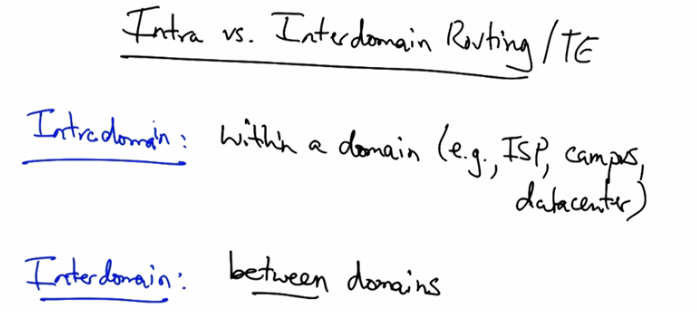 Intra vs. Interdomain Routing/TE
Intradomain: within a domain (e.g., ISP, campus,
datacenter)
Interdomain: between domains